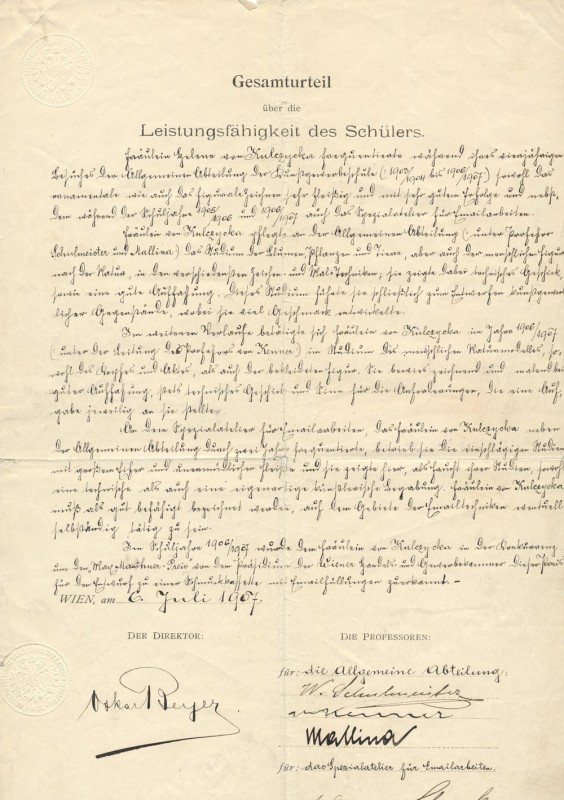 Gesamturteil
über die
Leistungsfähigkeit des Schülers.
Fräulein Helene von Kulczycka frequentierte während ihres vierjährigen
Besuches der Allgemeinen Abteilung der Kunstgewerbeschule (:1903/1904 bis 1906/1907) sowohl das
ornamentale wie auch das figurale Zeichnen sehr fleißig und mit sehr gutem Erfolge und nebst-
dem während der Schuljahre 1905/1906 und 1906/1907 auch das Spezialatelier für Emailarbeiten.
Fräulein von Kulczycka pflegte an der Allgemeinen Abteilung (:unter Professor
Schulmeister und Mallina:) das Studium der Blumen, Pflanzen und Tiere, aber auch der menschlichen Figur
nach der Natur, in den verschiedensten Zeichen- und Mal-Techniken; sie zeigte dabei technisches Geschick,
sowie eine gute Auffassung. Dieses Studium führte sie schließlich zum Entwerfen kunstgewerb-
licher Gegenstände, wobei sie viel Geschmack entwickelte.
Im weiteren Verlaufe betätigte sich Fräulein von Kulczycka im Jahre 1906/1907
(:unter der Leitung des Professors von Kenner:) im Studium des menschlichen Naturmodelles, so-
wohl des Kopfes und Aktes, als auch der bekleideten Figur. Sie bewies zeichnend und malend bei
guter Auffassung, stets technisches Geschick und Sinn für die Anforderungen, die eine Auf-
gabe jeweilig an sie stellte.
An dem Spezialatelier für Emailarbeiten, das Fräulein von Kulczycka neben
der Allgemeinen Abteilung durch zwei Jahre frequentierte, betrieb sie die einschlägigen Studien
mit großem Eifer und unermüdlichem Fleiße und sie zeigte hier, als Frucht ihrer Studien, sowohl
eine technische als auch eine eigenartige künstlerische Begabung. Fräulein von Kulczycka
muß als gut befähigt bezeichnet werden, auf dem Gebiete der Emailtechniken eventuell
selbständig tätig zu sein.
Im Schuljahre 1906/1907 wurde dem Fräulein von Kulczycka in der Konkurrenz
um den Max Mauthner-Preis von dem Präsidium der Wiener Handels und Gewerbekammer dieser Preis
für den Entwurf zu einer Schmuckkassette mit Emailfüllungen zuerkannt. –
WIEN, am 6. Juli 1907.
DER DIREKTOR:
DIE PROFESSOREN:
für: die Allgemeine Abteilung:
Oskar Beyer
W. Schulmeister
v Kenner
Mallina
für: das Spezialatelier für Emailarbeiten.